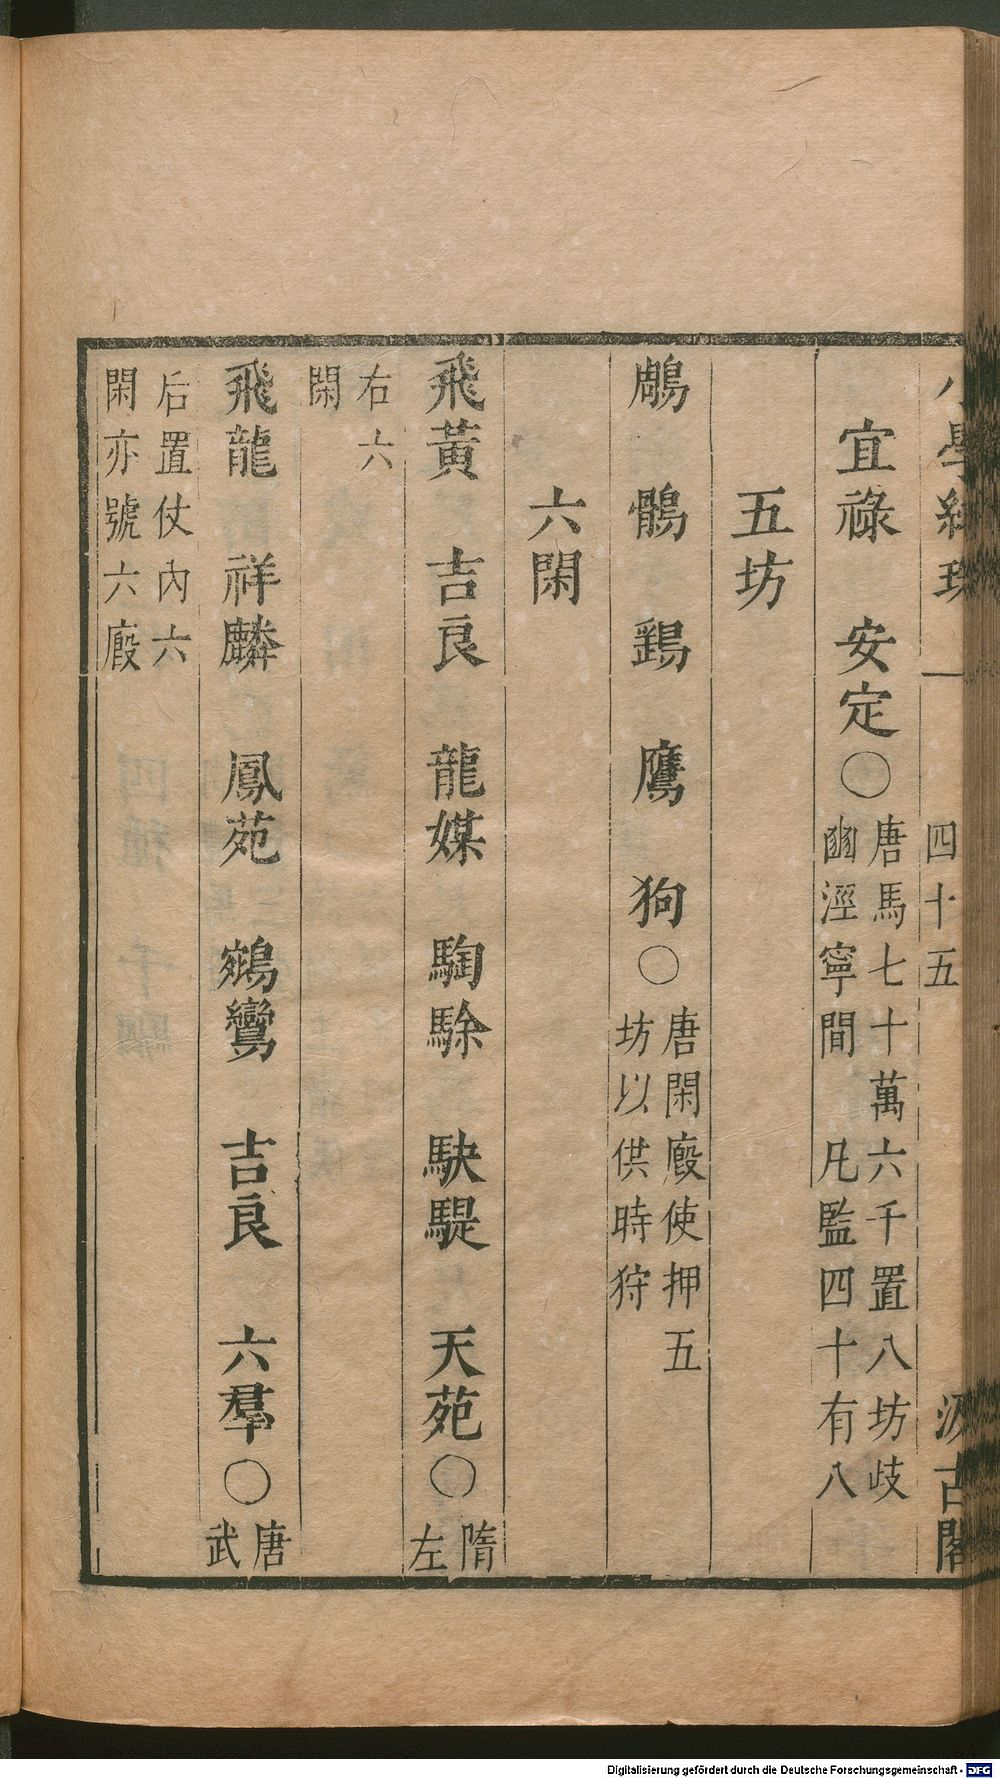 小學紺珠 一 四十五 汲古閣
宜祿 安定○唐馬七十萬六千置八坊歧
豳涇寧間 凡監四十有八
五坊
鵰 鶻 鷂 鷹 狗○唐閑廏使押五
坊以供時狩
六閑
飛黃 吉良 龍媒 騊駼 駃騠 天苑○隋左
右六
閑
飛龍 祥麟 鳳苑 鵷鸞 吉良 六羣○唐武
后置仗內六
閑亦號六廏
Digitalisierung gefördert durch die Deutsche Forschungsgemeinschaft - DFG